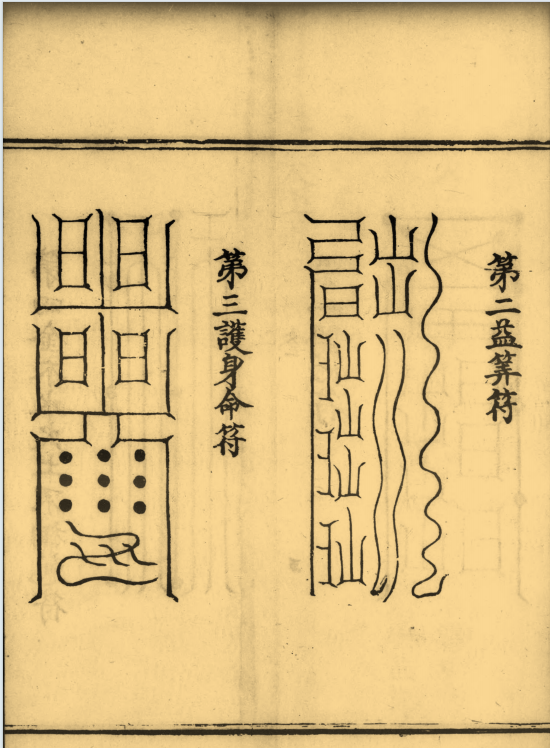 第二益筭符
第三護身命符